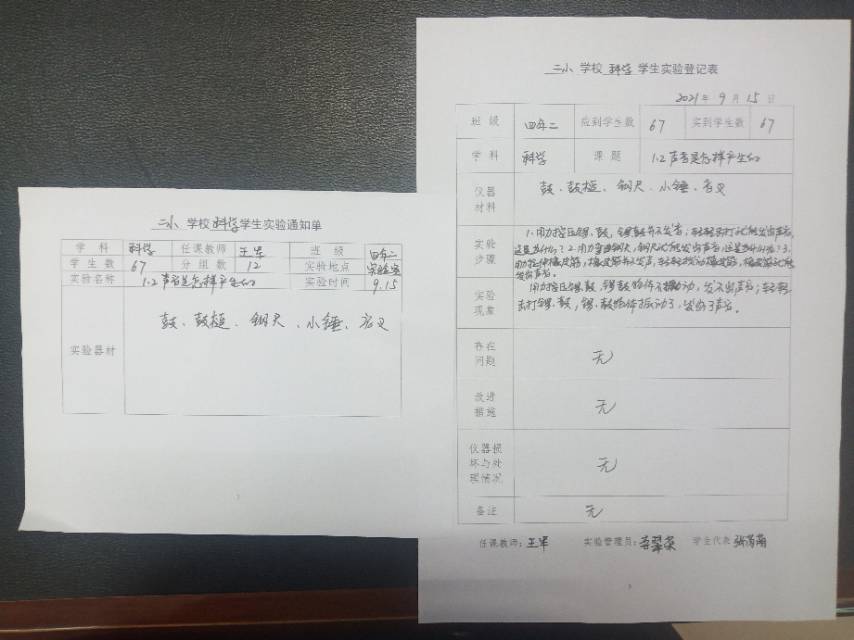 二小 学校 科学 学生实验通知单
学 科 科学 任课教师 王军 班 级 四年二
学生数 67 分组数 12 实验地点 实验室
实验名称 1.2声音是怎样产生的 实验时间 9.15
实验器材 鼓、鼓槌、钢尺、小锤、音叉
二小 学校 科学 学生实验登记表
2021年 9 月 15 日
班 级 四年二 应到学生数 67 实到学生数 67
学 科 科学 课 题 1.2声音是怎样产生的
仪器
材料
鼓、鼓槌、钢尺、小锤、音叉
实验
步骤
1.用力按压锣、鼓,锣鼓并不发声;轻轻击打它能发出声音,
这是为什么?2.用力 钢尺,钢尺 能发出声音,这是为什么?3.
用力拉伸橡皮筋,橡皮筋并不发声,轻轻拨动橡皮筋,橡皮筋 能
发出声音。
实验
现象
用力按压锣、鼓,锣鼓物体不振动,发不出声音;轻轻
击打锣、鼓,锣、鼓物体振动了,发出了声音。
存在
问题
无
改进
措施
无
仪器损
坏与处
理情况
无
备注 无
任课教师:王军 实验管理员: 学生代表